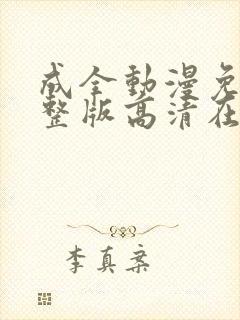 成全動漫免
整版高清在
李真棻